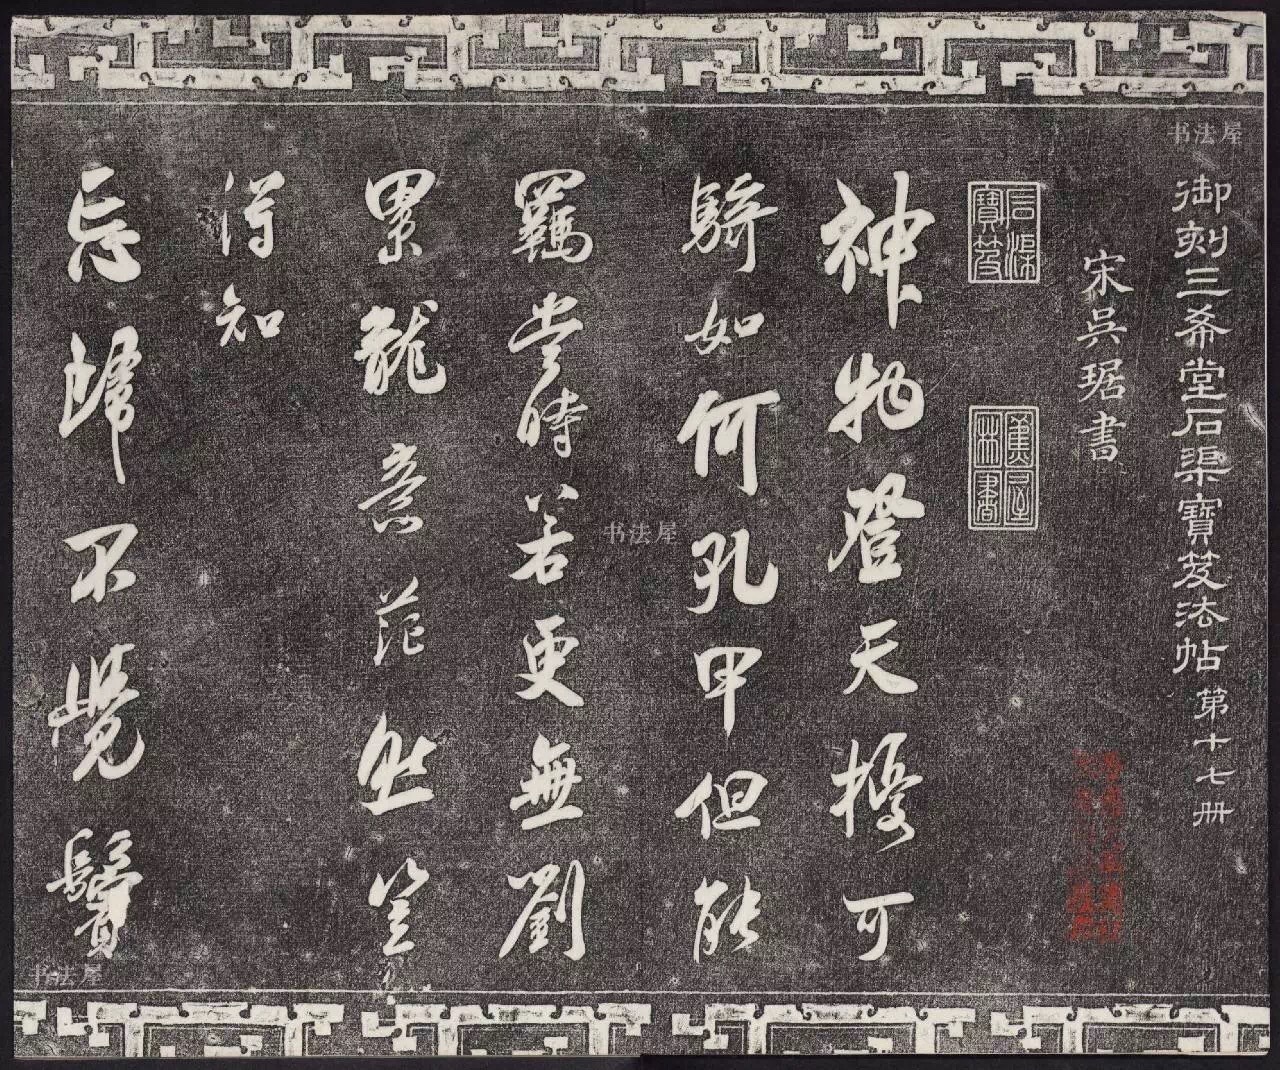 御刻三希堂石渠寶笈法帖 第十七册
宋吳琚書
石渠寶笈
神物登天擾可
騎如何孔甲但能
羈當時若更無劉
累龍意茫然豈
得知
忘歸不覺鬢
书法屋
书法屋
书法屋